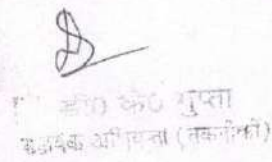 डी0 के0 गुप्ता
सहायक अभियन्ता (तकनीकी)